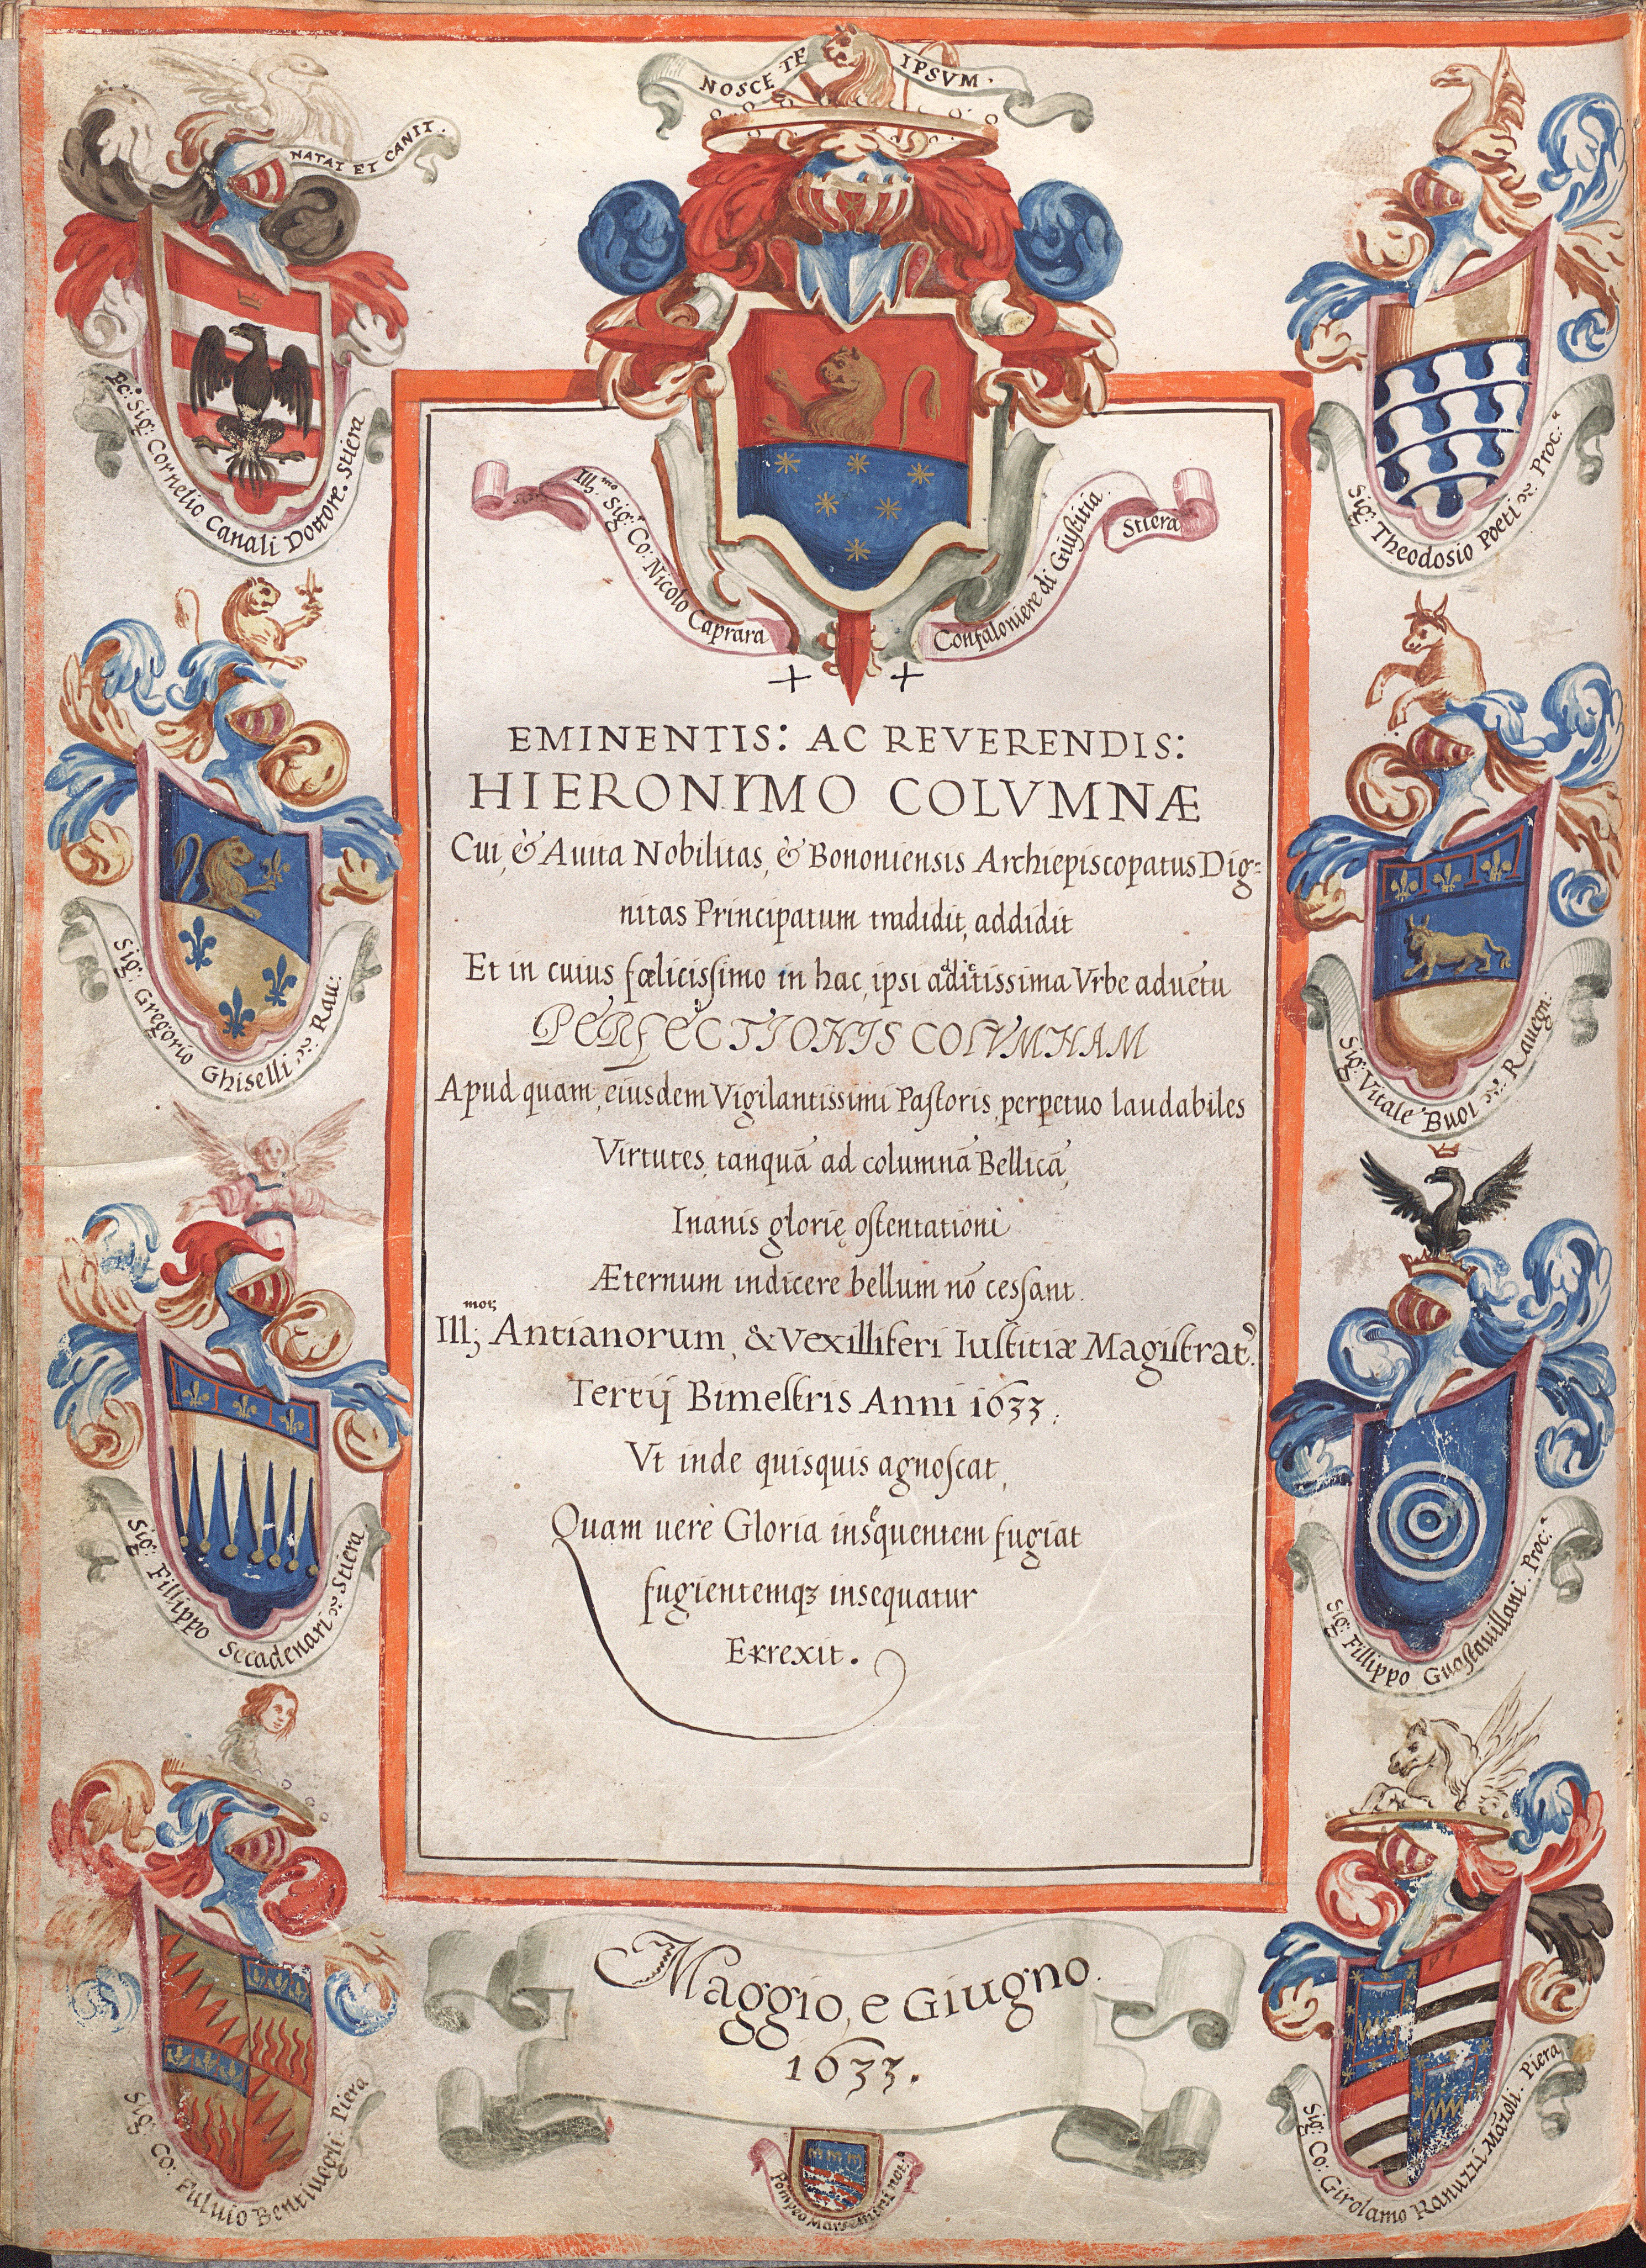 NOSCE TE IPSVM.
NATAT ET CANIT.
Ec: Sig: Cornelio Canali Dottore. Stiera
Sig: Theodosio Poeti &c. Proc.a
Ill.mo Sig: Co: Nicolo Caprara
Confaloniere di Giustitia. Stiera
EMINENTIS: AC REVERENDIS:
HIERONIMO COLVMNÆ
Cui, & Auita Nobilitas, & Bononiensis Archiepiscopatus Dig=
nitas Principatum tradidit, addidit
Et in cuius fœlicissimo in hac, ipsi addictissima Vrbe aduētu
PERFECTIONIS COLVMNAM
Apud quam, eiusdem Vigilantissimi Pastoris, perpetuo laudabiles
Virtutes, tanquā ad columnā Bellicā,
Inanis glorię ostentationi
Æternum indicere bellum nō cessant.
Ill;mor Antianorum, & Vexilliferi Iustitiæ Magistrat9.
Tertij Bimestris Anni 1633.
Vt inde quisquis agnoscat,
Quam uerè Gloria insequentem fugiat
fugientemqꝫ insequatur
Errexit.
Sig: Gregorio Ghiselli &c. Rau:
Sig: Vitale Buoi &c. Rauegn:
Sig: Fillippo Seccadenari &c. Stiera
Sig: Fillippo Guastauillani. Proc.a
Sig: Co: Fuluio Bentiuogli. Piera
Sig: Co: Girolamo Ranuzzi Māzoli. Piera
Maggio, e Giugno.
1633.
Pompeo